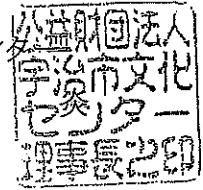 公益財団法人
宇治市文化
センター
理事長之印